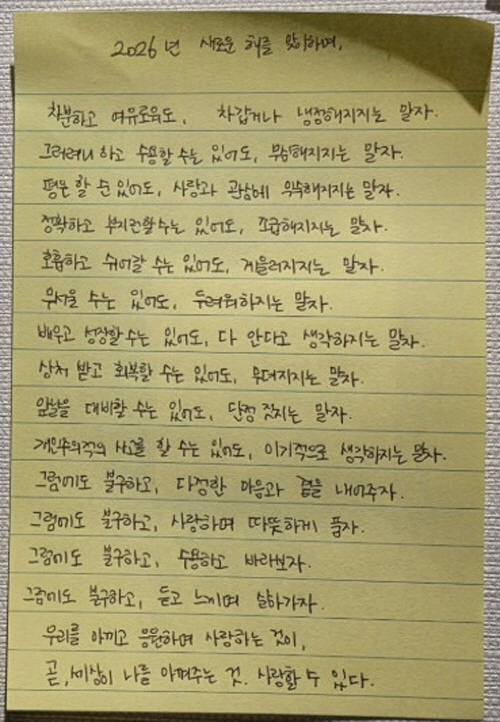 2026년 새로운 해를 맞이하며,
차분하고 여유로워도, 차갑거나 냉정해지지는 말자.
그러려니 하고 수용할 수는 있어도, 무심해지지는 말자.
평온 할 순 있어도, 사랑과 관심에 인색해지지는 말자.
정확하고 부지런할 수는 있어도, 조급해지지는 말자.
호흡하고 쉬어갈 수는 있어도, 게을러지지는 말자.
무서울 수는 있어도, 두려워하지는 말자.
배우고 성장할 수는 있어도, 다 안다고 생각하지는 말자.
상처 받고 회복할 수는 있어도, 무뎌지지는 말자.
앞날을 대비할 수는 있어도, 단정 짓지는 말자.
개인주의적 사고를 할 수는 있어도, 이기적으로 생각하지는 말자.
그럼에도 불구하고, 다정한 마음과 곁을 내어주자.
그럼에도 불구하고, 사랑하며 따뜻하게 품자.
그럼에도 불구하고, 수용하고 바라보자.
그럼에도 불구하고, 듣고 느끼며 살아가자.
우리를 아끼고 응원하며 사랑하는 것이,
곧, 세상이 나를 아껴주는 것. 사랑할 수 있다.